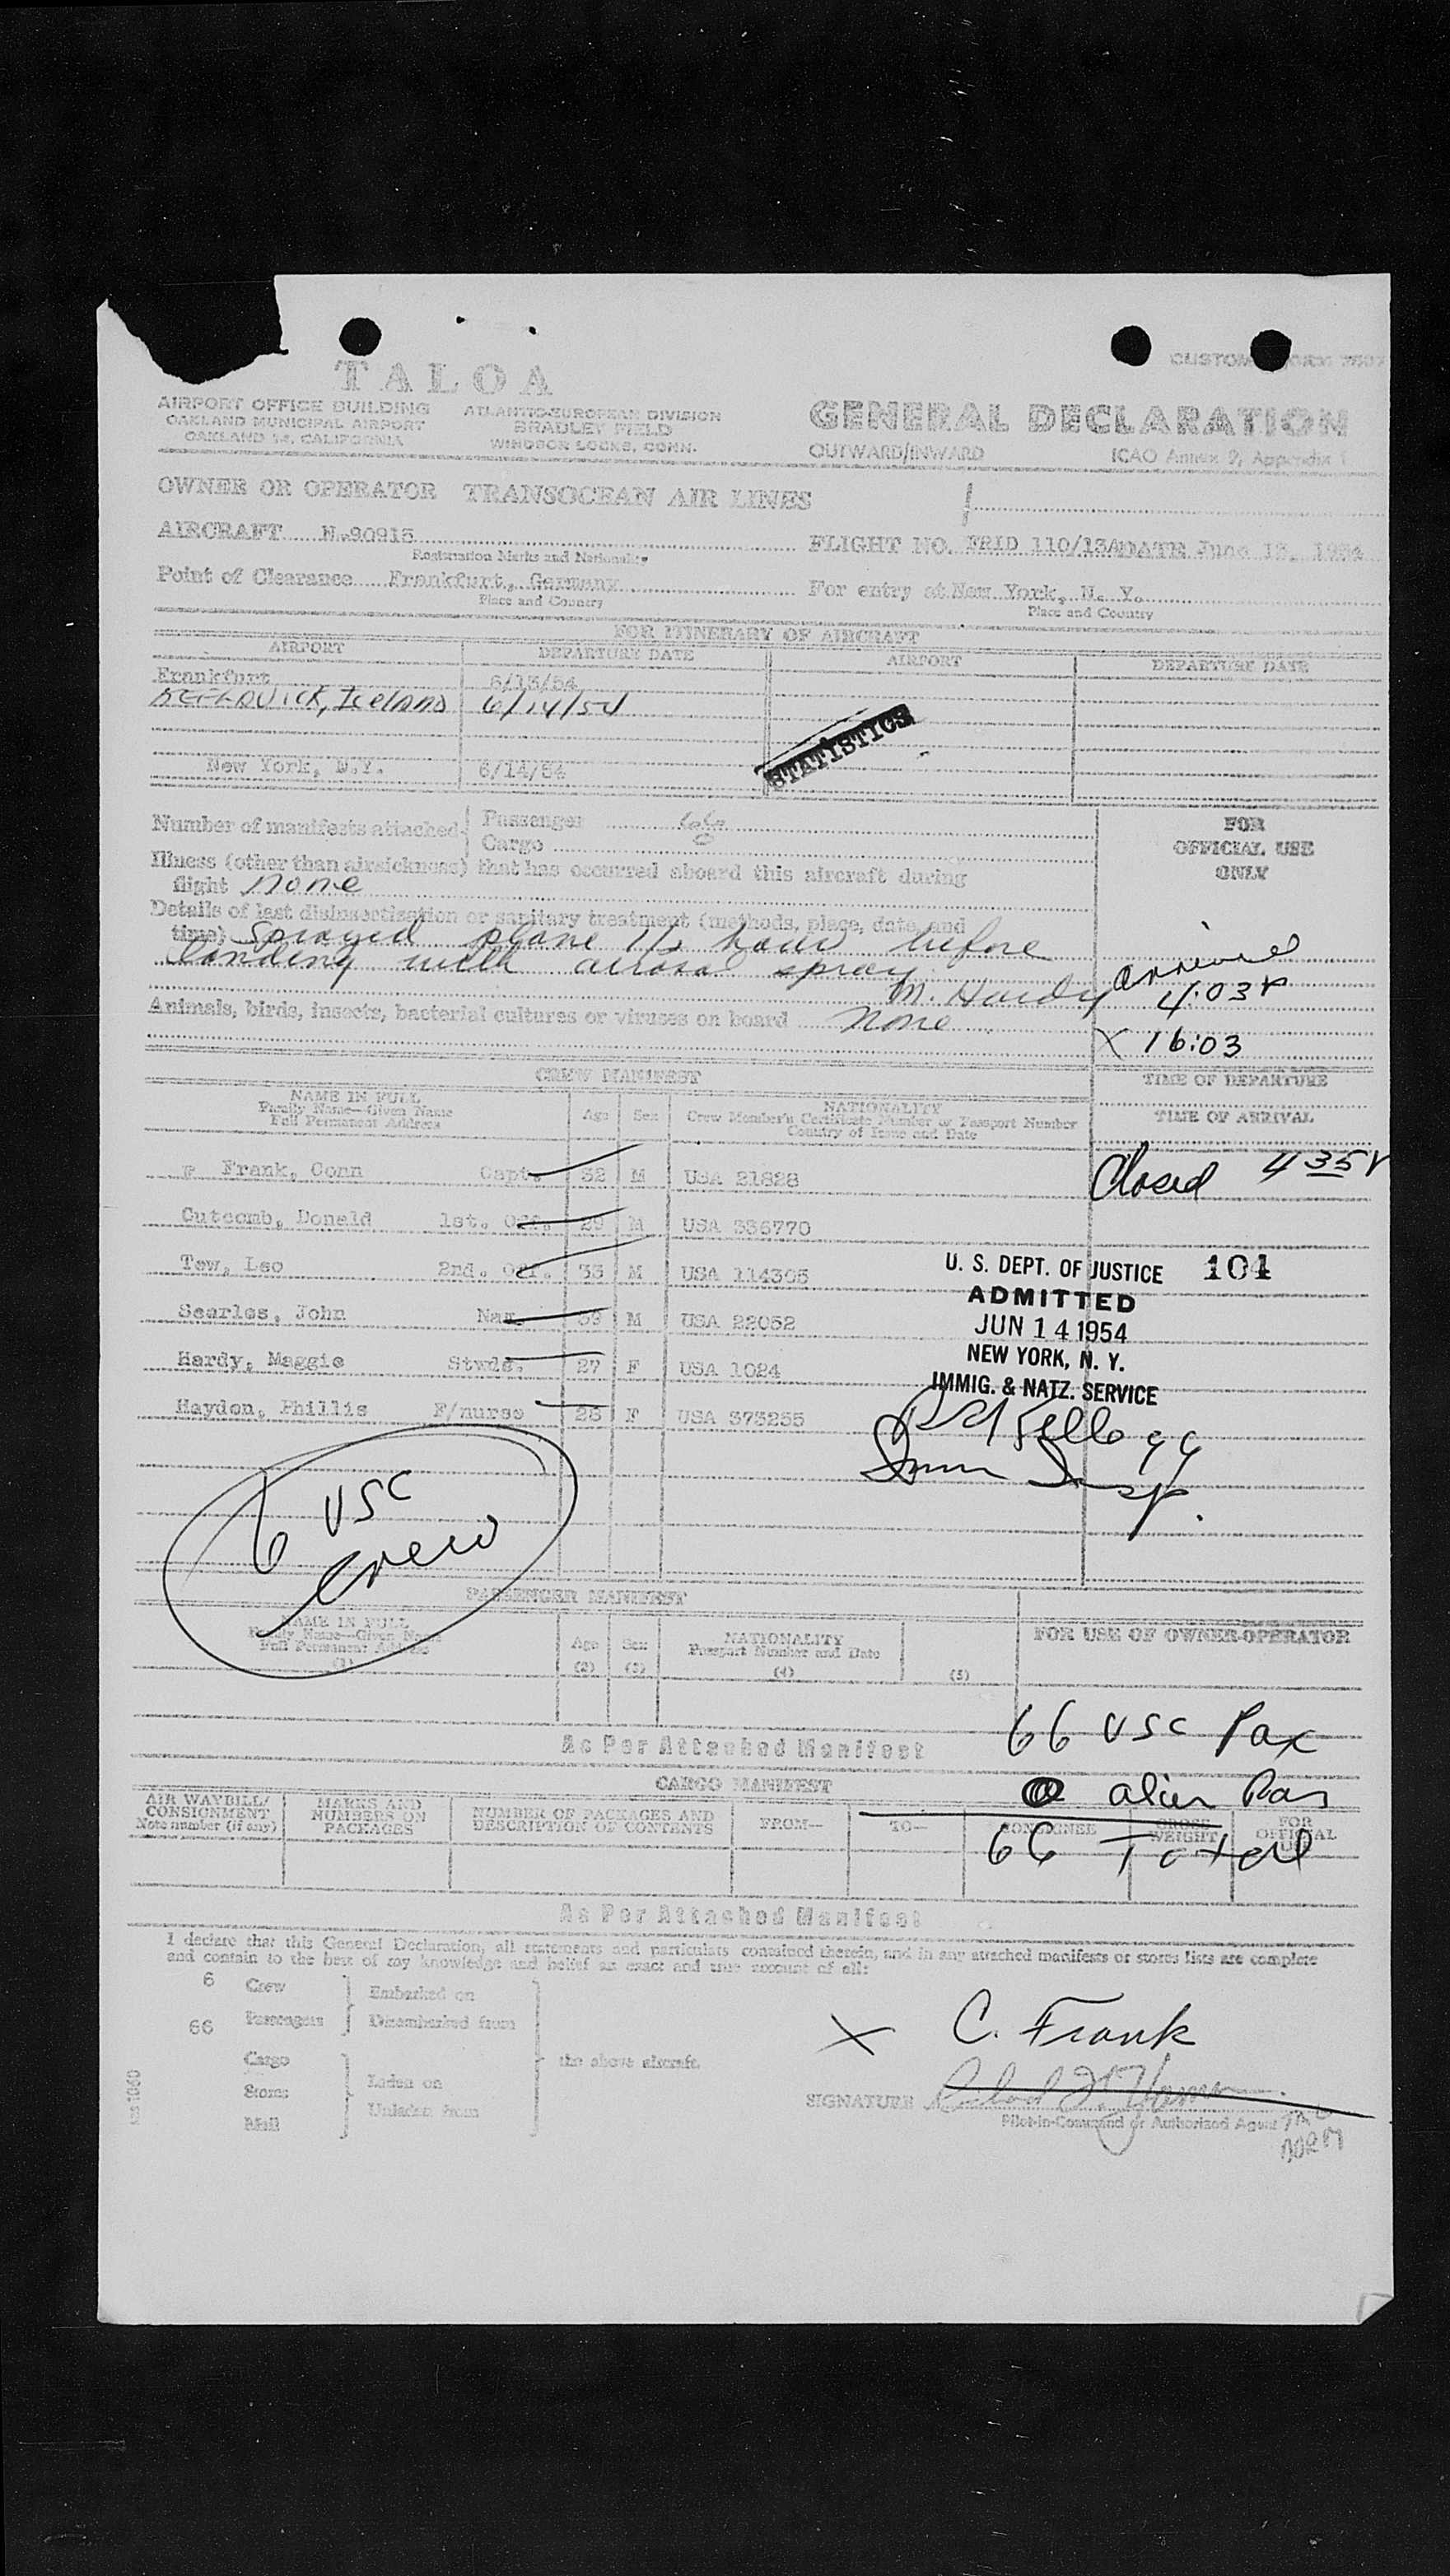 TALOA
AIRPORT OFFICE BUILDING
OAKLAND MUNICIPAL AIRPORT
OAKLAND 14, CALIFORNIA
ATLANTIC-EUROPEAN DIVISION
BRADLEY FIELD
WINDSOR LOCKS, CONN.
CUSTOM
GENERAL DECLARATION
OUTWARD/INWARD ICAO Annex 9, Appendix 1
OWNER OR OPERATOR TRANSOCEAN AIR LINES
AIRCRAFT N.90915
Registration Marks and Nationality
FLIGHT NO. FRID 110/13A DATE June 13, 1954
Point of Clearance Frankfurt, Germany
Place and Country
For entry at New York, N. Y.
Place and Country
FOR ITINERARY OF AIRCRAFT
AIRPORT DEPARTURE DATE AIRPORT DEPARTURE DATE
Frankfurt 6/13/54
Iceland 6/14/54
New York, N.Y. 6/14/54
STATISTICS
Number of manifests attached Passenger 66
Cargo
FOR
OFFICIAL USE
ONLY
Illness (other than airsickness) that has occurred aboard this aircraft during
flight none
Details of last disinsectisation or sanitary treatment (methods, place, date, and
time) Sprayed plane 1/2 hour before
landing with aerosal spray
M. Hardy
Animals, birds, insects, bacterial cultures or viruses on board none
arrived
4:03 P
X 16:03
TIME OF DEPARTURE
TIME OF ARRIVAL
Closed 4 35 P
CREW MANIFEST
NAME IN FULL
Family Name—Given Name
Full Permanent Address
Age Sex
NATIONALITY
Crew Member's Certificate Number or Passport Number
Country of Issue and Date
Frank, Conn Capt. 32 M USA 21828
Cutcomb, Donald 1st. Off. 29 M USA 336770
Tew, Leo 2nd. Off. 33 M USA 114305
Searles, John Nav. 39 M USA 22052
Hardy, Maggie Stwds. 27 F USA 1024
Haydon, Phillis F/nurse 28 F USA 373255
U. S. DEPT. OF JUSTICE 104
ADMITTED
JUN 14 1954
NEW YORK, N. Y.
IMMIG. & NATZ. SERVICE
Kellogg
Imm Insp.
6 USC
crew
PASSENGER MANIFEST
NAME IN FULL
Family Name—Given Name
Full Permanent Address
(1)
Age
(2)
Sex
(3)
NATIONALITY
Passport Number and Date
(4)
(5)
FOR USE OF OWNER-OPERATOR
66 USC Pax
0 alien Pax
66 Total
As Per Attached Manifest
CARGO MANIFEST
AIR WAYBILL/
CONSIGNMENT
Note number (if any)
MARKS AND
NUMBERS ON
PACKAGES
NUMBER OF PACKAGES AND
DESCRIPTION OF CONTENTS
FROM—
TO—
CONSIGNEE
GROSS
WEIGHT
FOR
OFFICIAL
As Per Attached Manifest
I declare that this General Declaration, all statements and particulars contained therein, and in any attached manifests or stores lists are complete
and contain to the best of my knowledge and belief an exact and true account of all:
6 Crew
66 Passengers
Embarked on
Disembarked from
Cargo
Stores
Mail
Laden on
Unladen from
the above aircraft.
X C. Frank
SIGNATURE
Pilot-in-Command or Authorized Agent